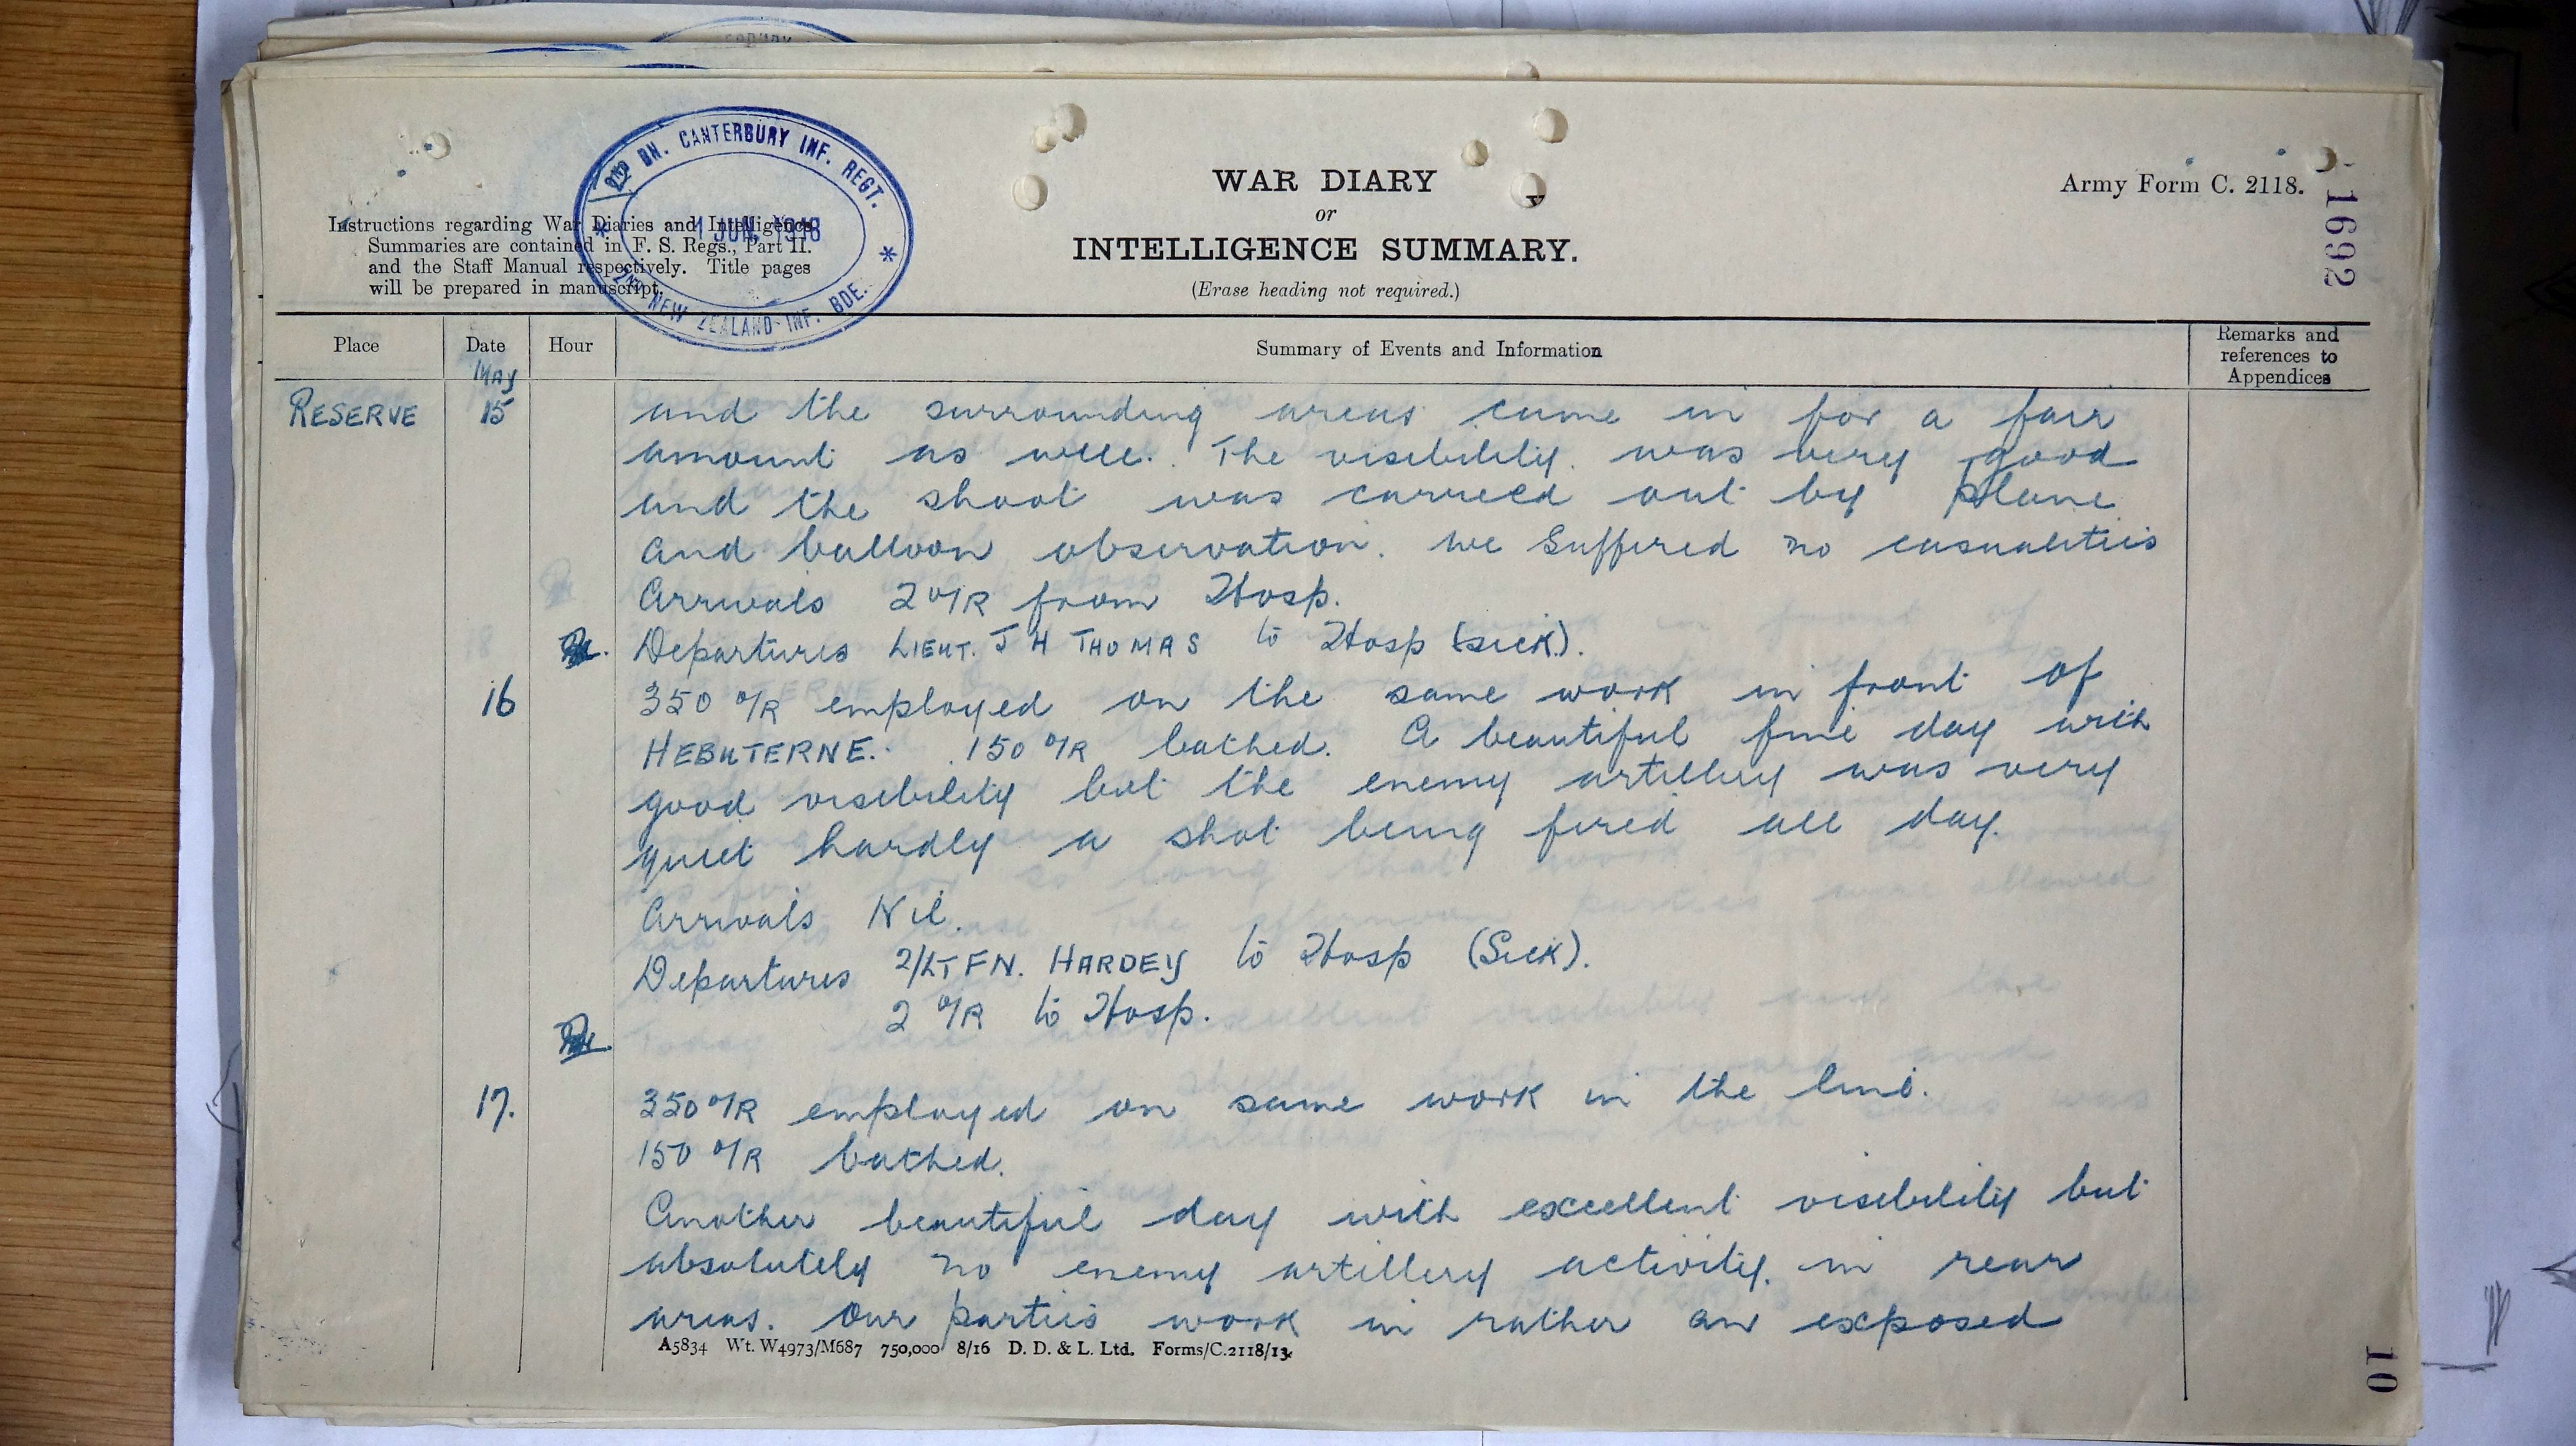 2ND BN. CANTERBURY INF. REGT.
1 JUN. 1918
2ND NEW ZEALAND INF. BDE.
Instructions regarding War Diaries and Intelligence
Summaries are contained in F. S. Regs., Part II.
and the Staff Manual respectively. Title pages
will be prepared in manuscript.
WAR DIARY
or
INTELLIGENCE SUMMARY.
(Erase heading not required.)
Army Form C. 2118.
1692
Place Date Hour Summary of Events and Information Remarks and references to Appendices
MAY
RESERVE 15 and the surrounding areas came in for a fair
amount as well. The visibility was very good
and the shoot was carried out by plane
and balloon observation. We suffered no casualities
Arrivals 2 O/R from Hosp.
Departures LIEUT. J H THOMAS to Hosp (sick).
16 350 O/R employed on the same work in front of
HEBUTERNE. 150 O/R bathed. A beautiful fine day with
good visibility but the enemy artillery was very
quiet hardly a shot being fired all day.
Arrivals Nil.
Departures 2/LT F N. HARDEY to Hosp (Sick).
2 O/R to Hosp.
17. 350 O/R employed on same work in the line.
150 O/R bathed.
Another beautiful day with excellent visibility but
absolutely no enemy artillery activity in rear
areas. Our parties work in rather an exposed
A5834 Wt. W4973/M687 750,000 8/16 D. D. & L. Ltd. Forms/C.2118/13.
10